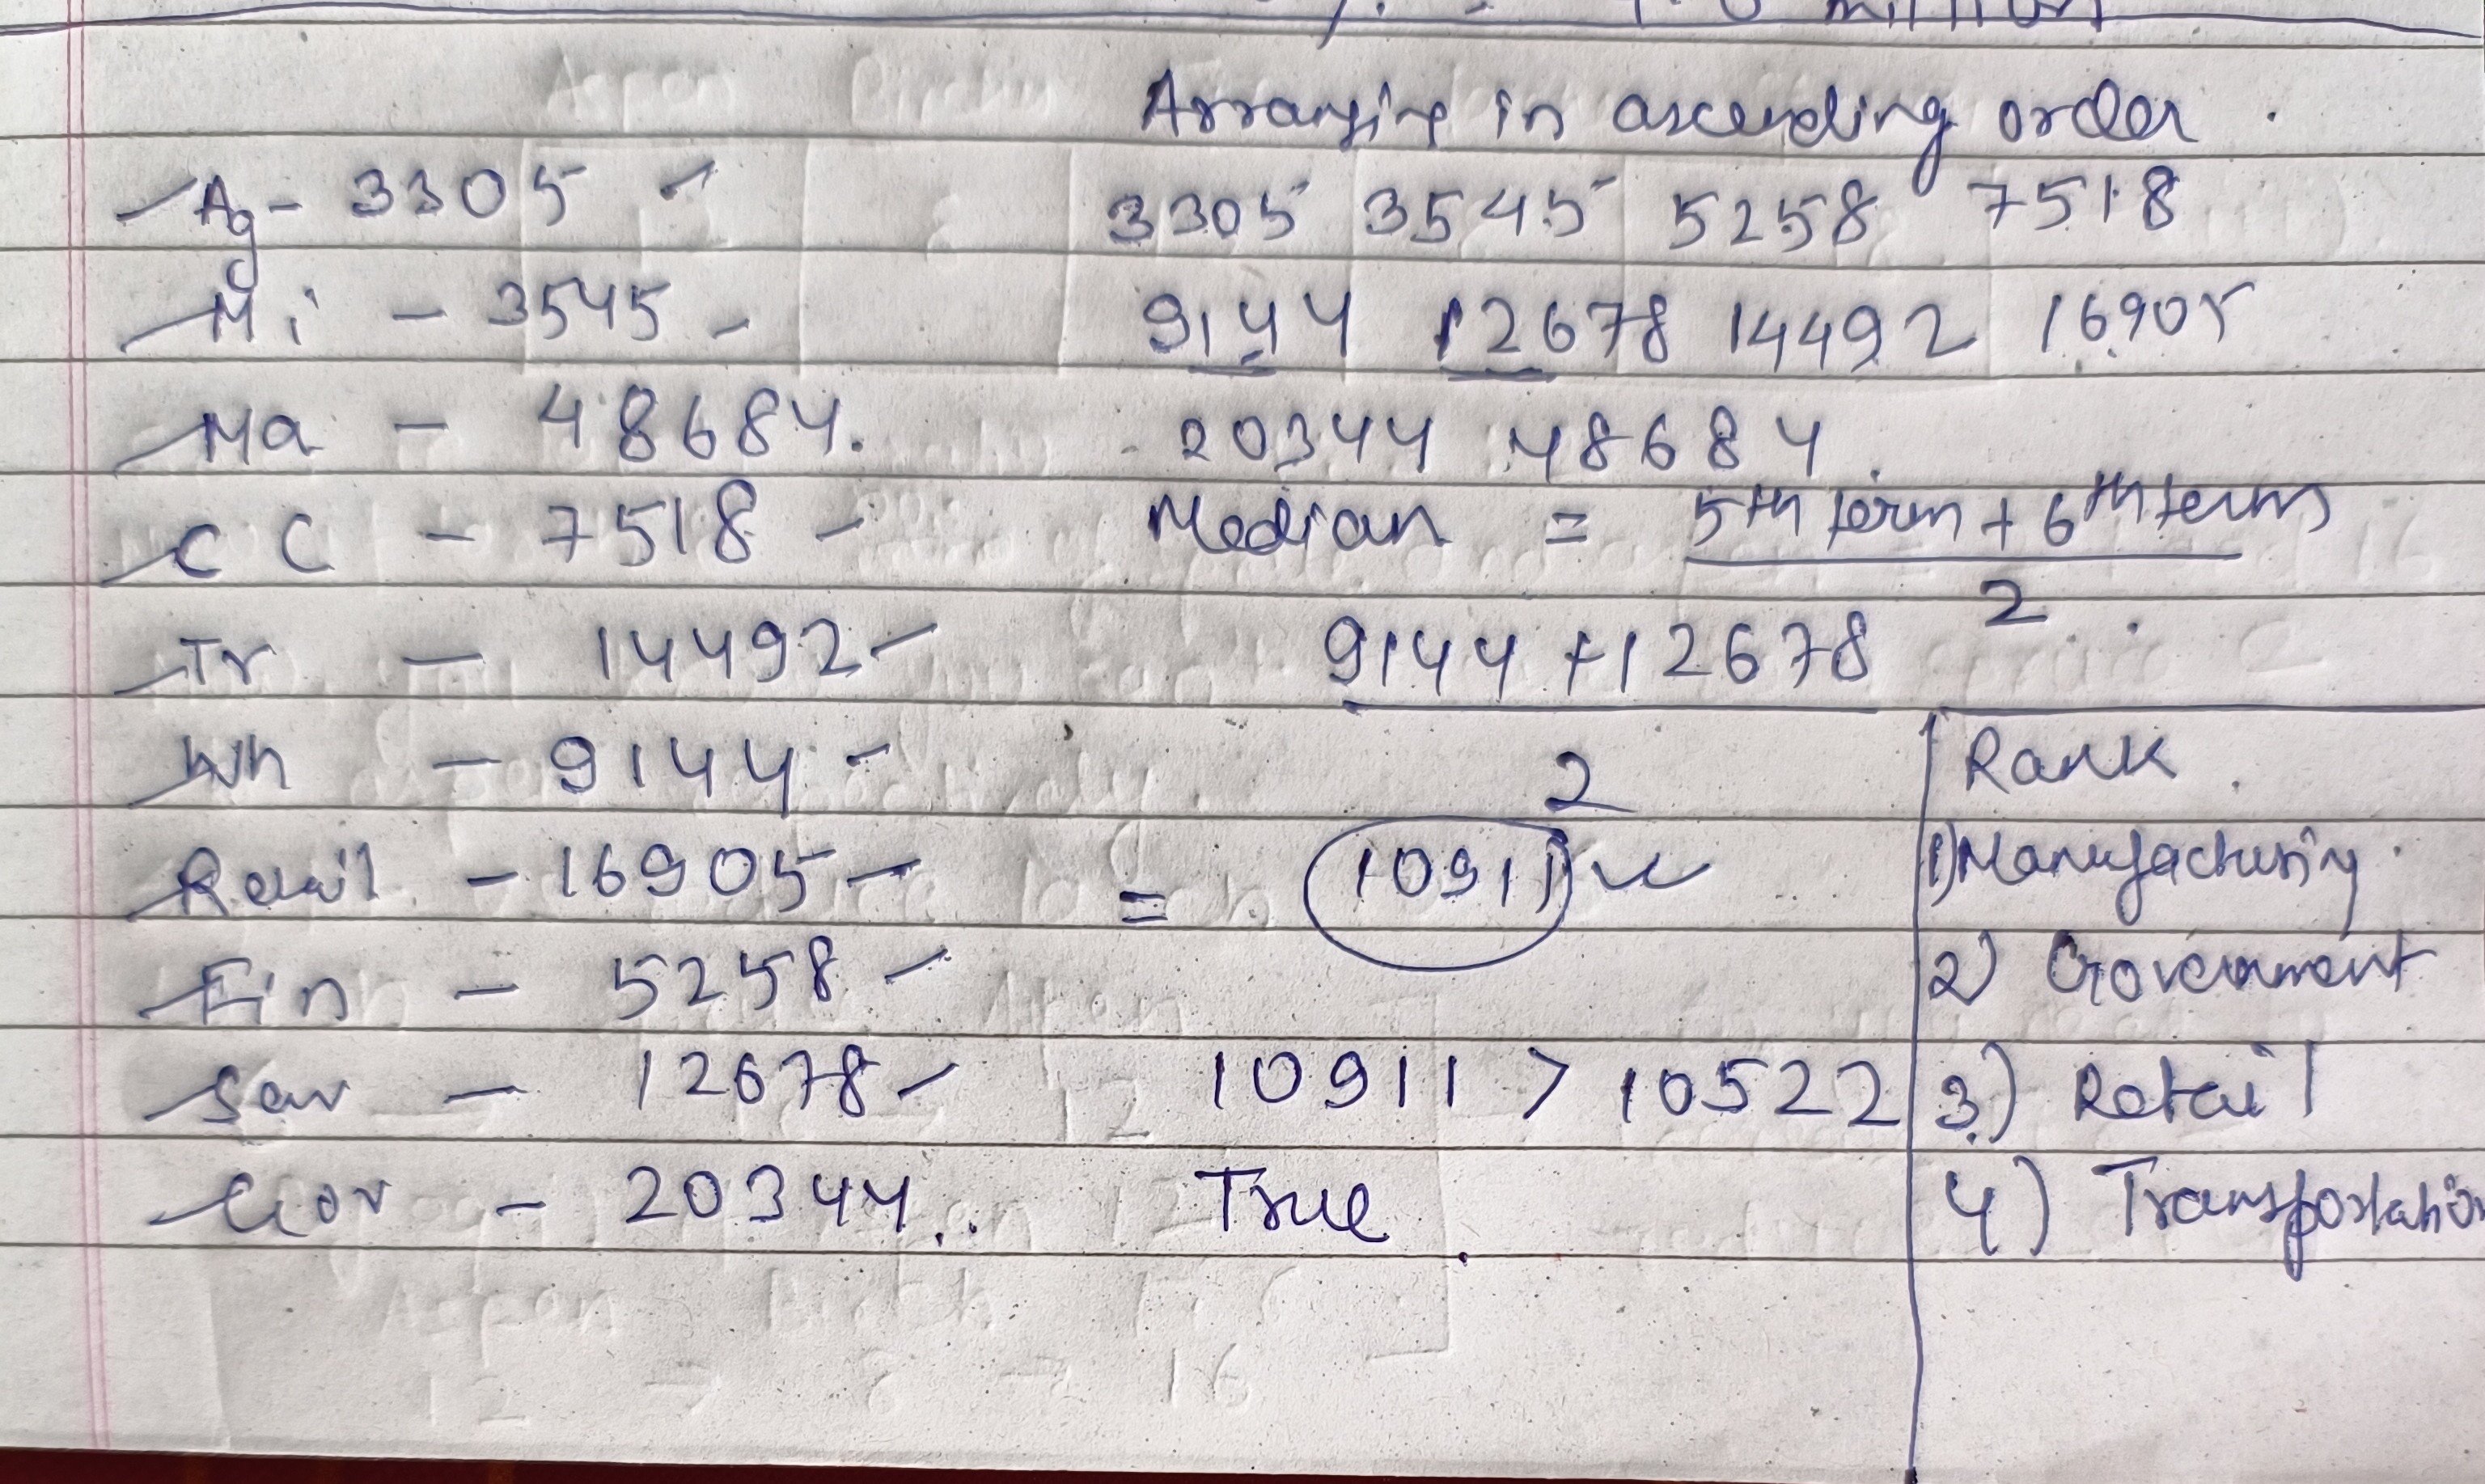 million
Arranging in ascending order.
Ag - 3305
3305 3545 5258 7518
Mi - 3545
9144 12678 14492 16905
Ma - 48684.
20344 48684.
CC - 7518
Median = 5th term + 6th term
2
Tr - 14492
9144 + 12678
2
Wh - 9144
Retail - 16905
= 10911
Fin - 5258
Ser - 12678
10911 > 10522
Gov - 20344..
True.
Rank
1) Manufacturing
2) Government
3.) Retail
4) Transportation